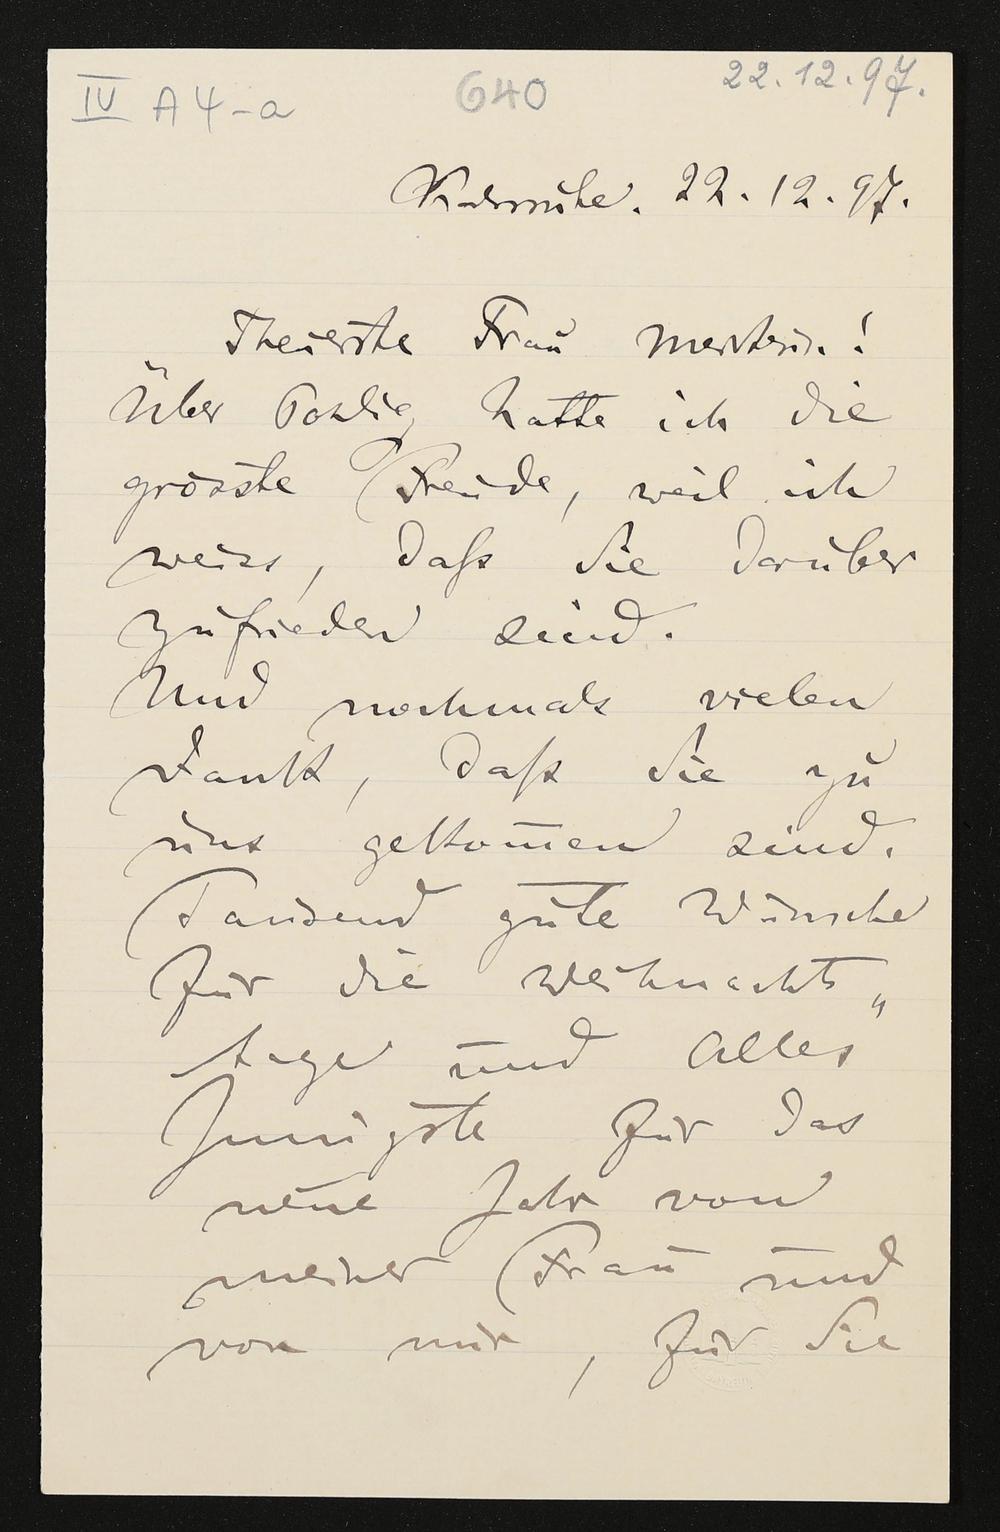 IV A 4-a 640 22.12.97.
Karlsruhe. 22.12.97.
Theuerste Frau Meisterin!
Über Pohlig hatte ich die
grösste Freude, weil ich
weiss, daß Sie darüber
zufrieden sind.
Und nochmals vielen
Dank, daß Sie zu
uns gekom̅en sind.
Tausend gute Wünsche
für die Weihnachts„
tage und Alles
Innigste für das
neue Jahr von
meiner Frau und
von mir, für Sie